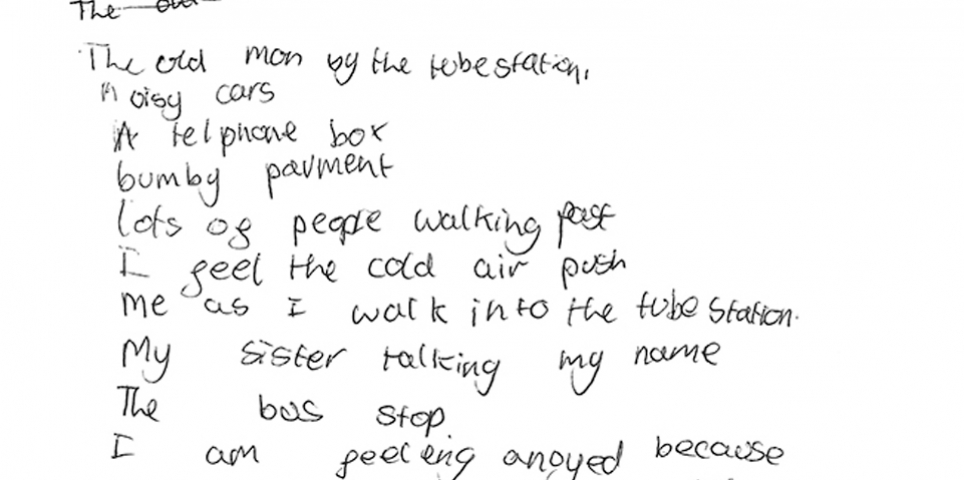 The old
The old man by the tube station,
Noisy cars
A telphone box
bumby pavment
lots of people walking past
I feel the cold air push
me as I walk into the tube station.
My sister talking my name
The bus stop
I am feeleing anoyed because